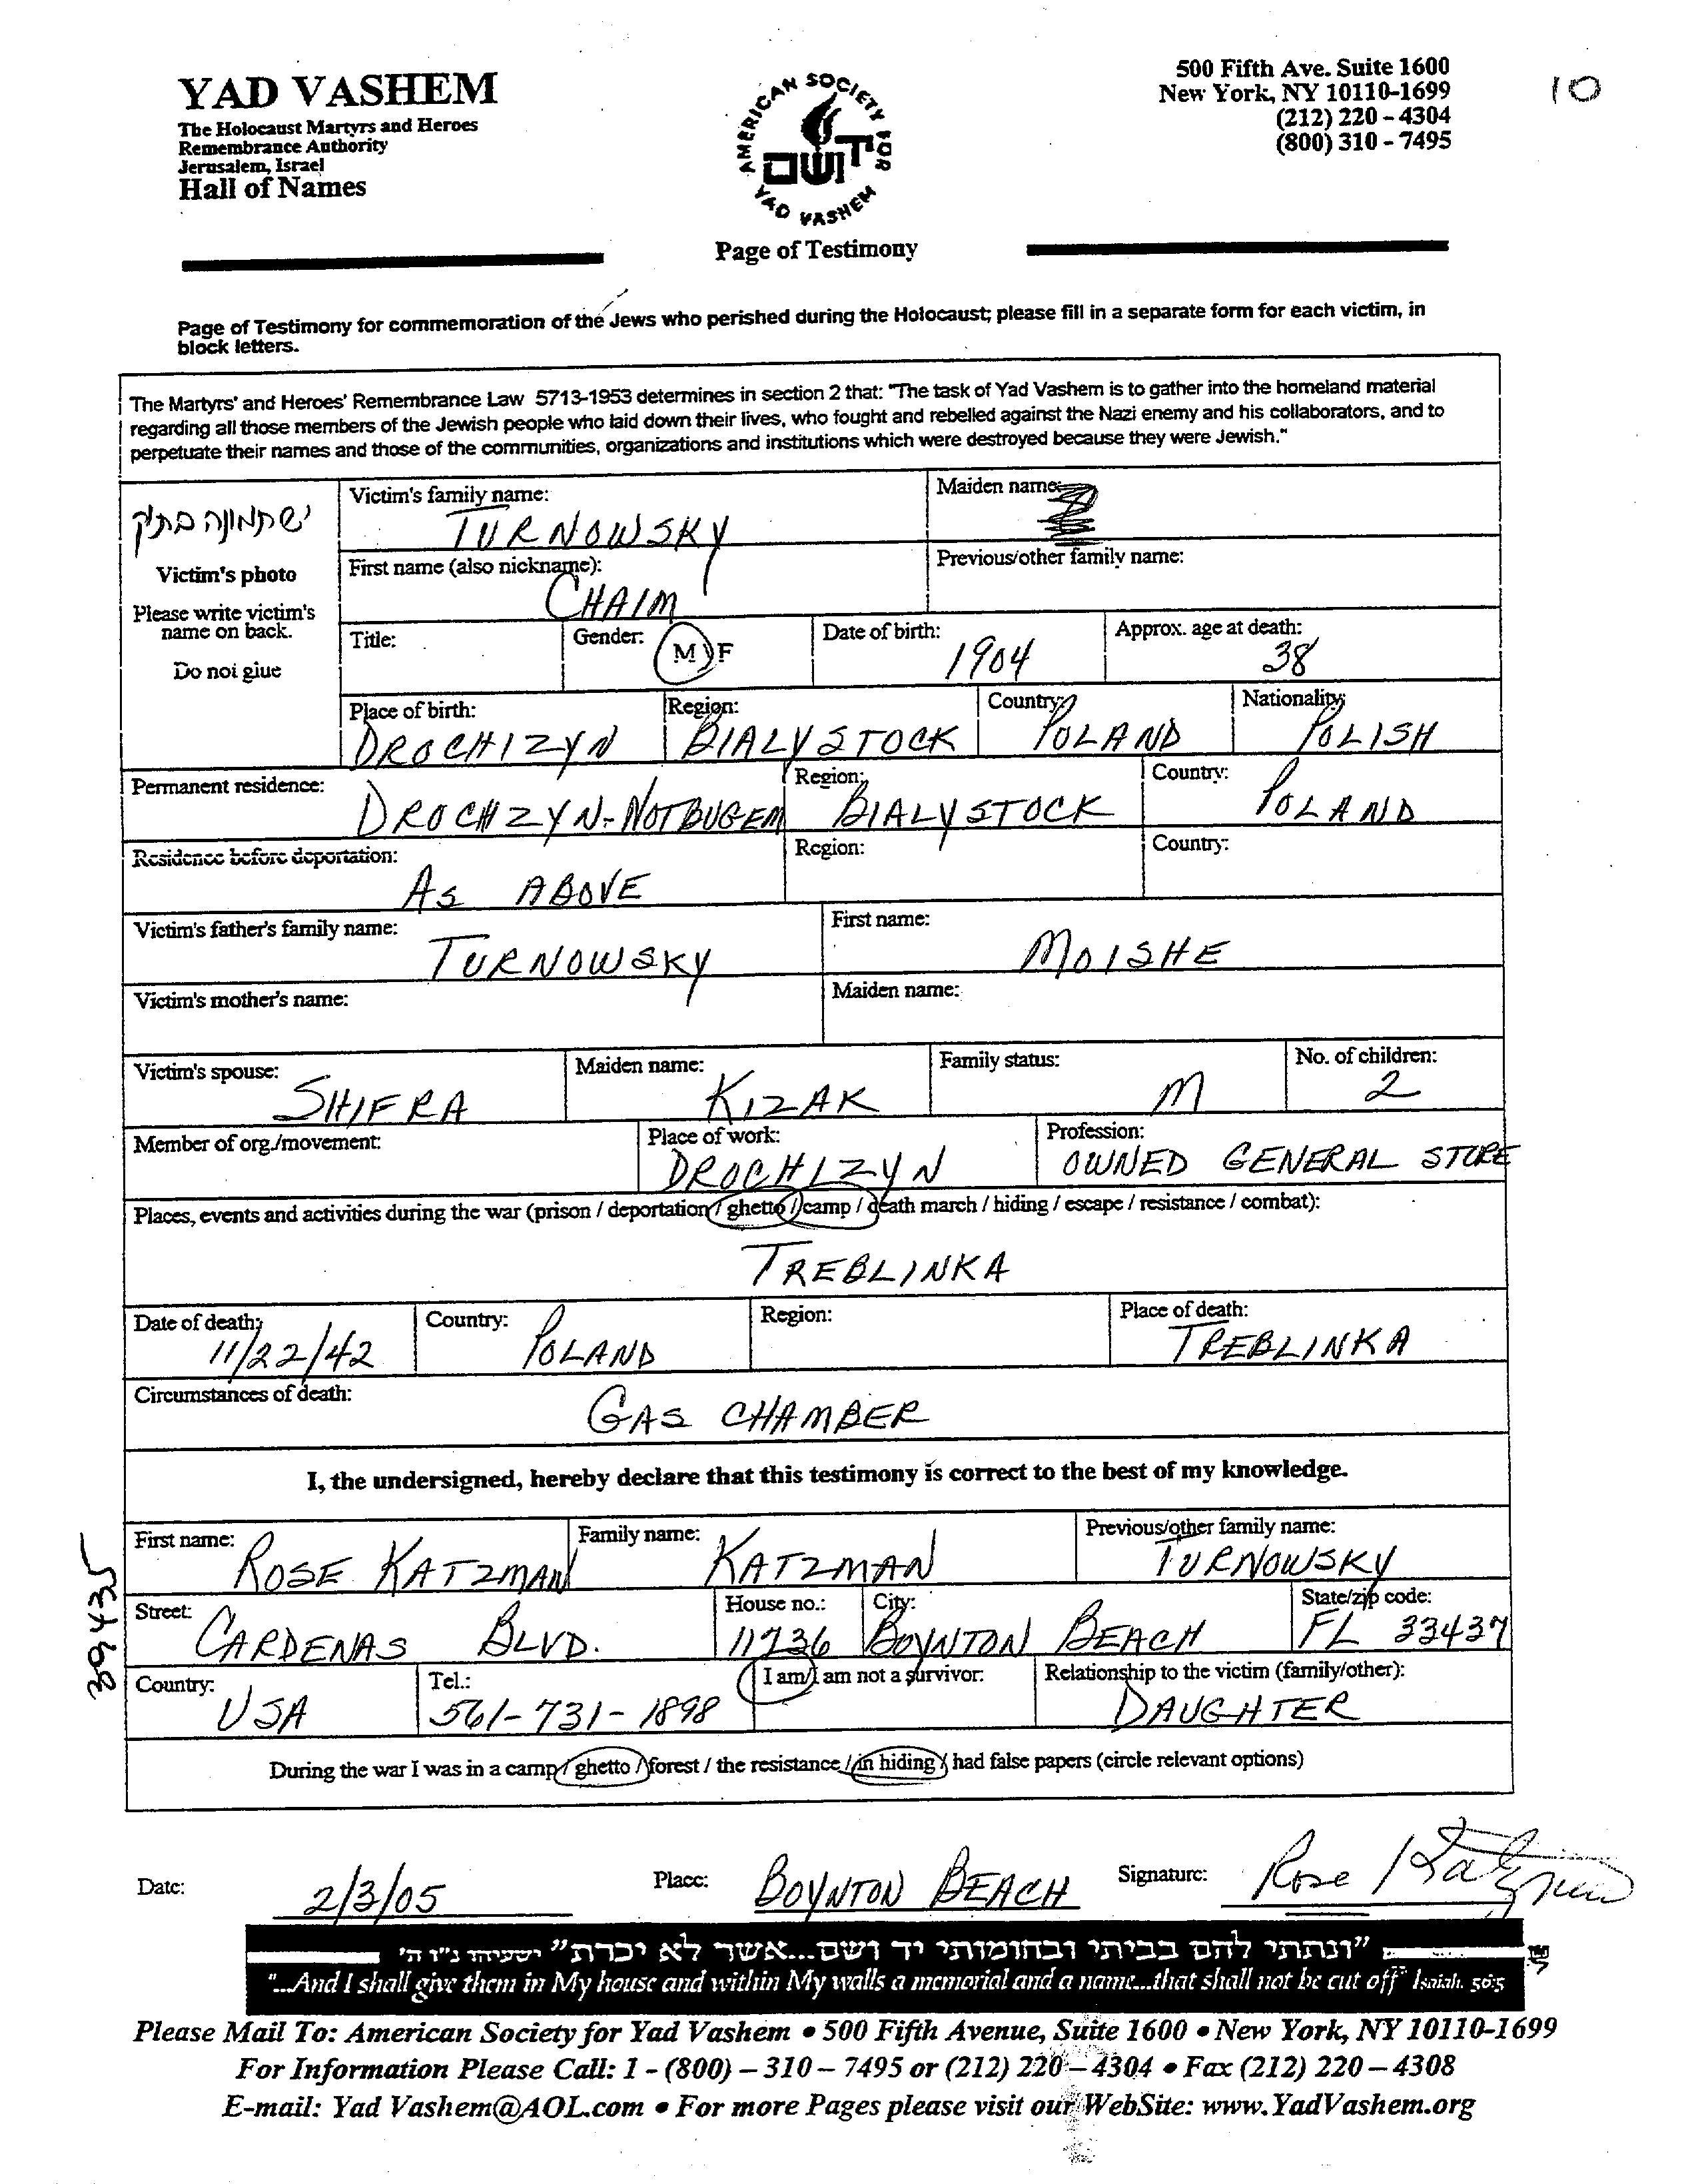 YAD VASHEM
The Holocaust Martyrs and Heroes
Remembrance Authority
Jerusalem, Israel
Hall of Names
AMERICAN SOCIETY FOR
YAD VASHEM
יד ושם
Page of Testimony
500 Fifth Ave. Suite 1600
New York, NY 10110-1699
(212) 220 – 4304
(800) 310 - 7495
10
Page of Testimony for commemoration of the Jews who perished during the Holocaust; please fill in a separate form for each victim, in
block letters.
The Martyrs' and Heroes' Remembrance Law 5713-1953 determines in section 2 that: "The task of Yad Vashem is to gather into the homeland material
regarding all those members of the Jewish people who laid down their lives, who fought and rebelled against the Nazi enemy and his collaborators, and to
perpetuate their names and those of the communities, organizations and institutions which were destroyed because they were Jewish."
יש תמונה בתיק
Victim's photo
Please write victim's
name on back.
Do not glue
Victim's family name: TURNOWSKY
Maiden name:
First name (also nickname): CHAIM
Previous/other family name:
Title:
Gender: M / F
Date of birth: 1904
Approx. age at death: 38
Place of birth: DROCHIZYN
Region: BIALYSTOCK
Country: POLAND
Nationality: POLISH
Permanent residence: DROCHZYN-NOTBUGEM
Region: BIALYSTOCK
Country: POLAND
Residence before deportation: AS ABOVE
Region:
Country:
Victim's father's family name: TURNOWSKY
First name: MOISHE
Victim's mother's name:
Maiden name:
Victim's spouse: SHIFRA
Maiden name: KIZAK
Family status: M
No. of children: 2
Member of org./movement:
Place of work: DROCHIZYN
Profession: OWNED GENERAL STORE
Places, events and activities during the war (prison / deportation / ghetto / camp / death march / hiding / escape / resistance / combat):
TREBLINKA
Date of death: 11/22/42
Country: POLAND
Region:
Place of death: TREBLINKA
Circumstances of death: GAS CHAMBER
I, the undersigned, hereby declare that this testimony is correct to the best of my knowledge.
First name: ROSE KATZMAN
Family name: KATZMAN
Previous/other family name: TURNOWSKY
Street: CARDENAS BLVD.
House no.: 11736
City: BOYNTON BEACH
State/zip code: FL 33437
Country: USA
Tel.: 561-731-1898
I am/I am not a survivor:
Relationship to the victim (family/other): DAUGHTER
During the war I was in a camp / ghetto / forest / the resistance / in hiding / had false papers (circle relevant options)
39435
Date: 2/3/05
Place: BOYNTON BEACH
Signature: Rose Katzman
"ונתתי להם בביתי ובחומותי יד ושם...אשר לא יכרת" ישעיהו נ"ו ה'
"...And I shall give them in My house and within My walls a memorial and a name...that shall not be cut off" Isaiah. 56:5
Please Mail To: American Society for Yad Vashem • 500 Fifth Avenue, Suite 1600 • New York, NY 10110-1699
For Information Please Call: 1 - (800) – 310 – 7495 or (212) 220 – 4304 • Fax (212) 220 – 4308
E-mail: Yad Vashem@AOL.com • For more Pages please visit our WebSite: www.YadVashem.org